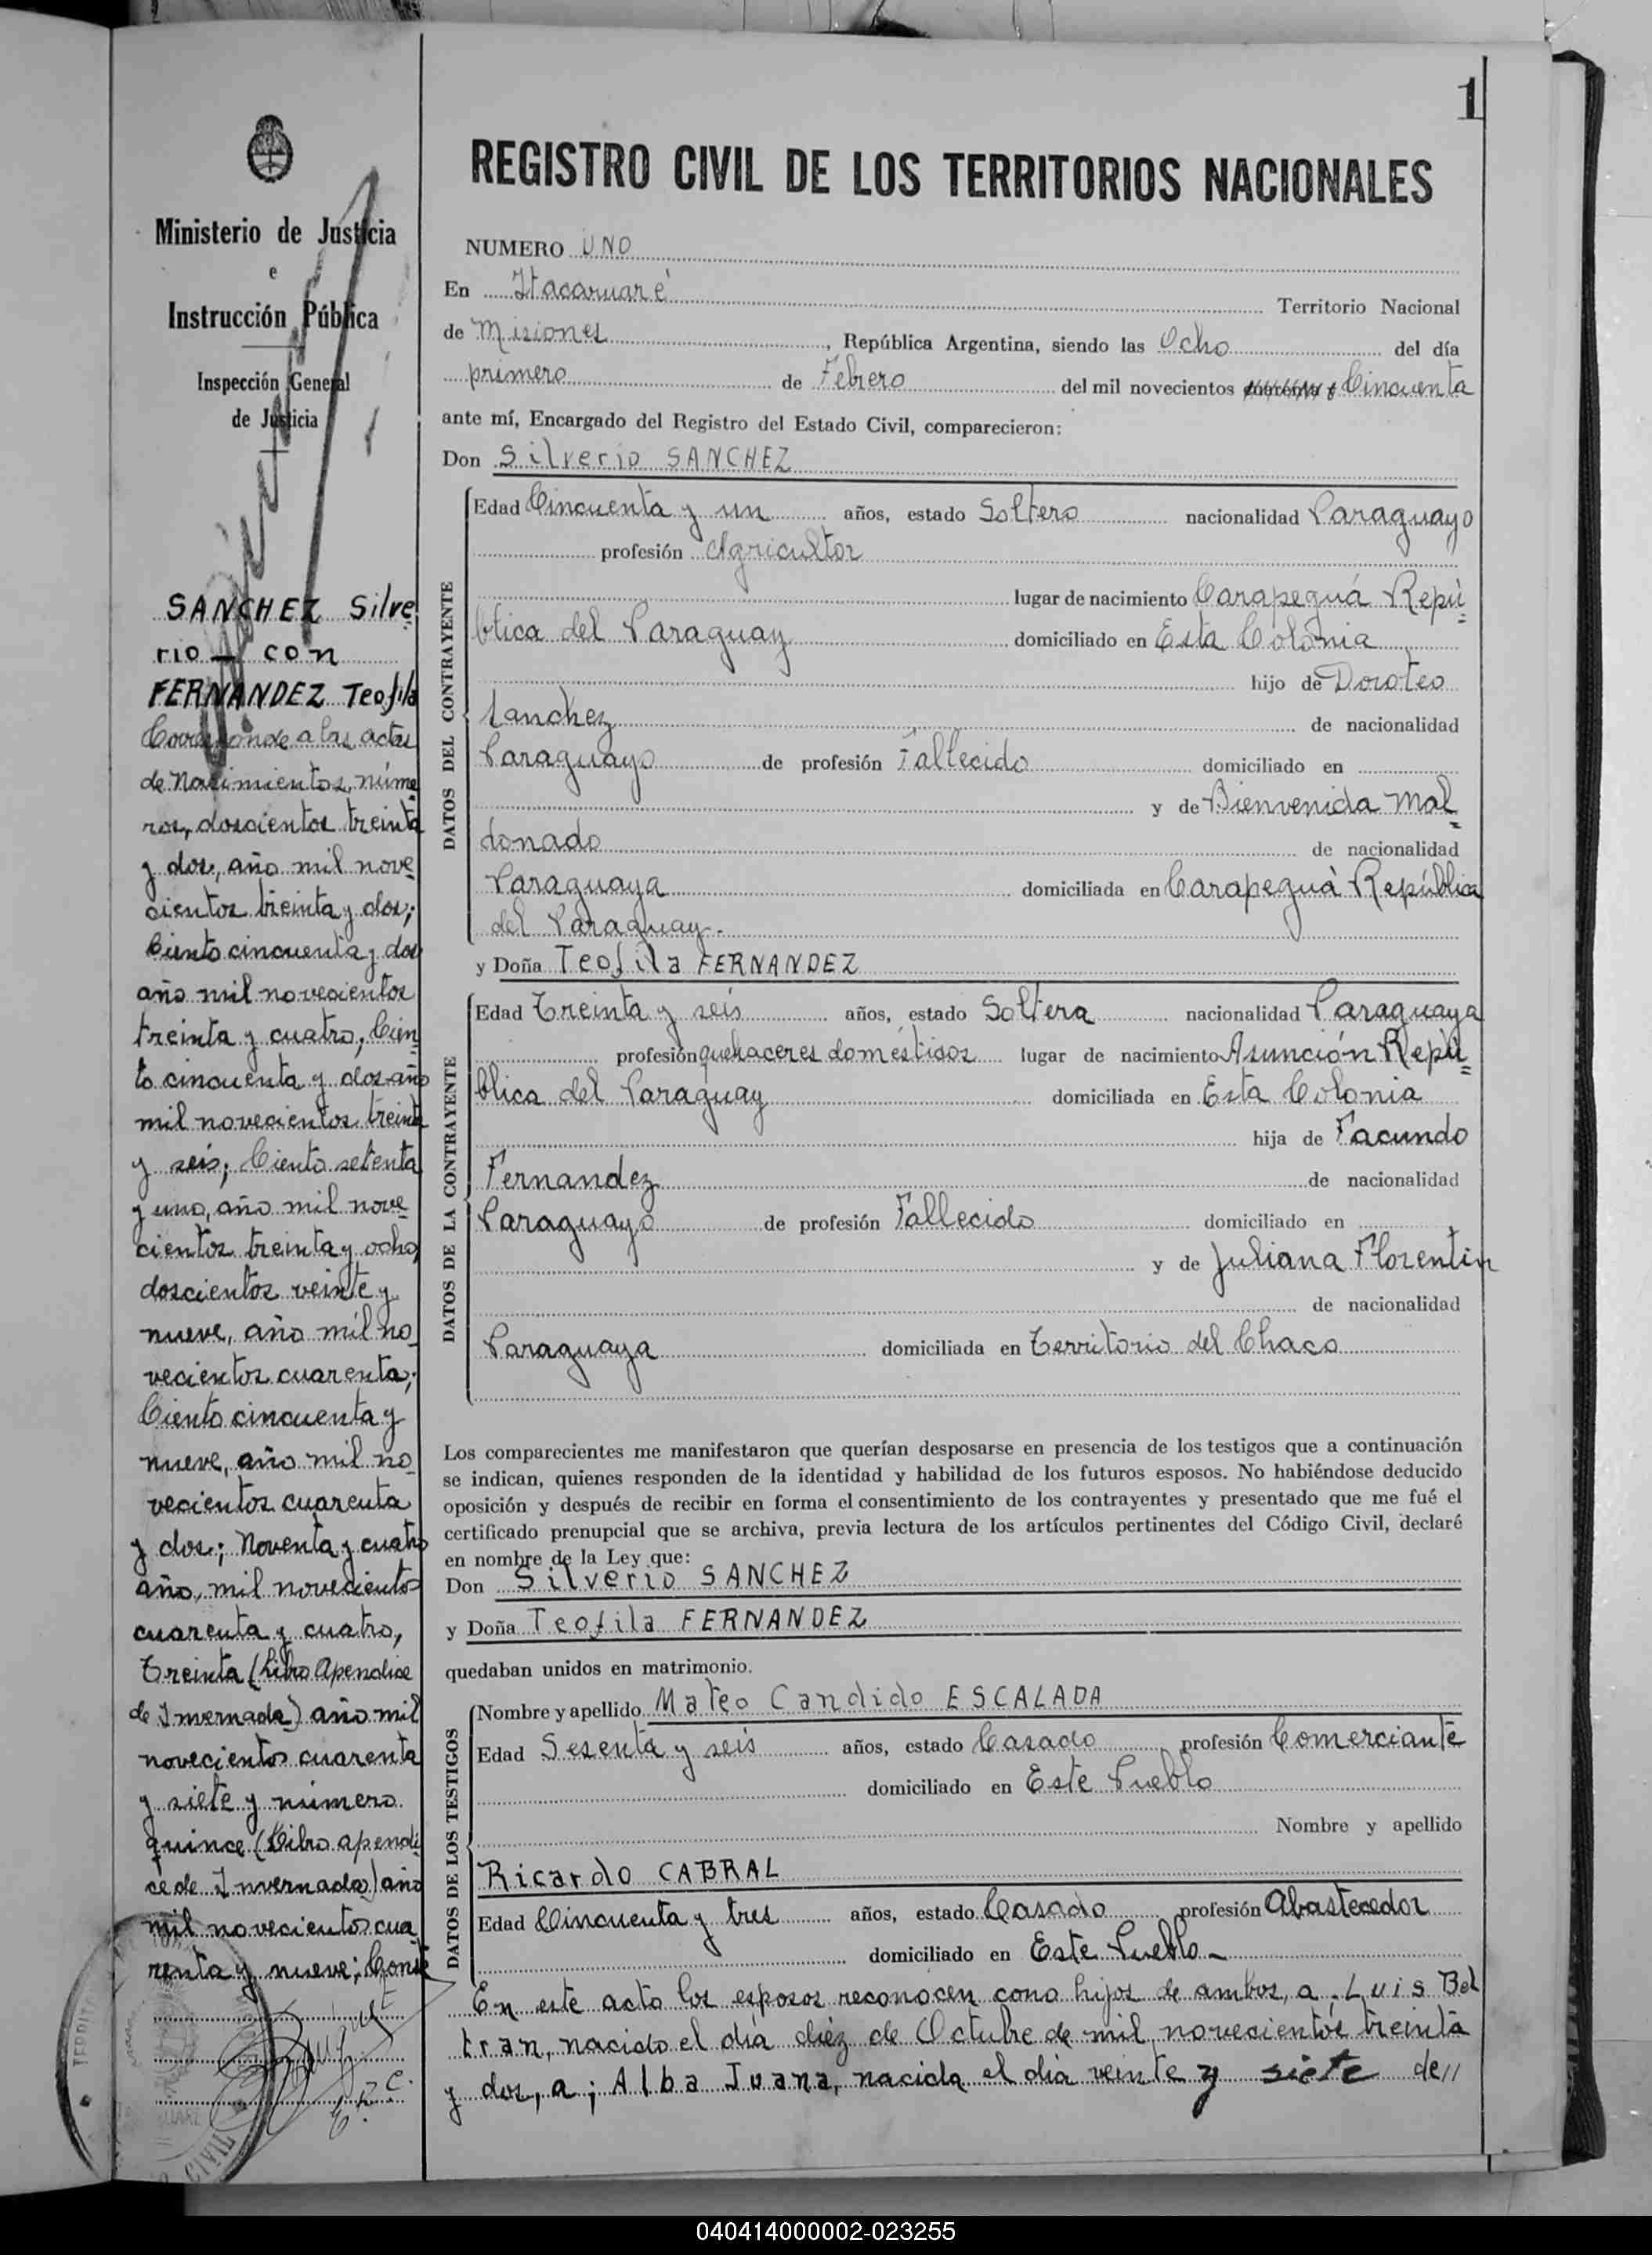 1
REGISTRO CIVIL DE LOS TERRITORIOS NACIONALES
Ministerio de Justicia
e
Instrucción Pública
Inspección General
de Justicia
SANCHEZ Silve
rio - con
FERNANDEZ Teofila
Corresponde a las actas
de Nacimientos, núme
ros, doscientos treinta
y dos, año mil nove
cientos treinta y dos;
Ciento cincuenta y dos
año mil novecientos
treinta y cuatro; Cien
to cincuenta y dos año
mil novecientos treinta
y seis; Ciento setenta
y uno, año mil nove
cientos treinta y ocho,
doscientos veinte y
nueve, año mil no
vecientos cuarenta;
Ciento cincuenta y
nueve, año mil no
vecientos cuarenta
y dos; Noventa y cuatro
año, mil novecientos
cuarenta y cuatro,
Treinta (Libro Apendice
de Invernada) año mil
novecientos cuarenta
y siete y número
quince (Libro apendi
ce de Invernada) año
mil novecientos cua
renta y nueve; Conste
E.R.C.
NUMERO UNO
En Itacaruaré Territorio Nacional
de Misiones, República Argentina, siendo las Ocho del día
primero de Febrero del mil novecientos cuarenta y Cincuenta
ante mí, Encargado del Registro del Estado Civil, comparecieron:
Don Silverio SANCHEZ
DATOS DEL CONTRAYENTE
Edad Cincuenta y un años, estado Soltero nacionalidad Paraguayo
profesión Agricultor
lugar de nacimiento Carapeguá Repú
blica del Paraguay domiciliado en Esta Colonia
hijo de Doroteo
Sanchez de nacionalidad
Paraguayo de profesión Fallecido domiciliado en
y de Bienvenida Mal
donado de nacionalidad
Paraguaya domiciliada en Carapeguá República
del Paraguay.
y Doña Teofila FERNANDEZ
DATOS DE LA CONTRAYENTE
Edad Treinta y seis años, estado Soltera nacionalidad Paraguaya
profesión quehaceres domésticos lugar de nacimiento Asunción Repú
blica del Paraguay domiciliada en Esta Colonia
hija de Facundo
Fernandez de nacionalidad
Paraguayo de profesión Fallecido domiciliado en
y de Juliana Florentin
de nacionalidad
Paraguaya domiciliada en Territorio del Chaco
Los comparecientes me manifestaron que querían desposarse en presencia de los testigos que a continuación
se indican, quienes responden de la identidad y habilidad de los futuros esposos. No habiéndose deducido
oposición y después de recibir en forma el consentimiento de los contrayentes y presentado que me fué el
certificado prenupcial que se archiva, previa lectura de los artículos pertinentes del Código Civil, declaré
en nombre de la Ley que:
Don Silverio SANCHEZ
y Doña Teofila FERNANDEZ
quedaban unidos en matrimonio.
DATOS DE LOS TESTIGOS
Nombre y apellido Mateo Candido ESCALADA
Edad Sesenta y seis años, estado Casado profesión Comerciante
domiciliado en Este Pueblo
Nombre y apellido
Ricardo CABRAL
Edad Cincuenta y tres años, estado Casado profesión Abastecedor
domiciliado en Este Pueblo -
En este acto los esposos reconocen como hijos de ambos, a: Luis Bel
tran, nacido el día diez de Octubre de mil novecientos treinta
y dos, a; Alba Juana, nacida el día veinte y siete de//
040414000002-023255